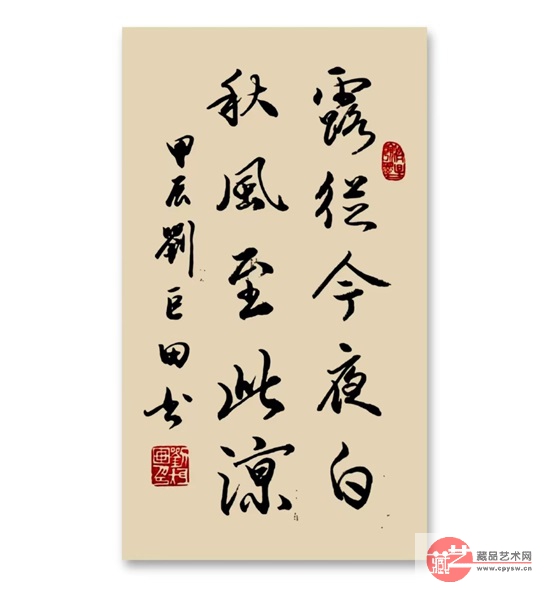 露從今夜白
秋風至此涼
甲辰劉巨田书
藏艺
藏品艺术网
www.cpysw.cn